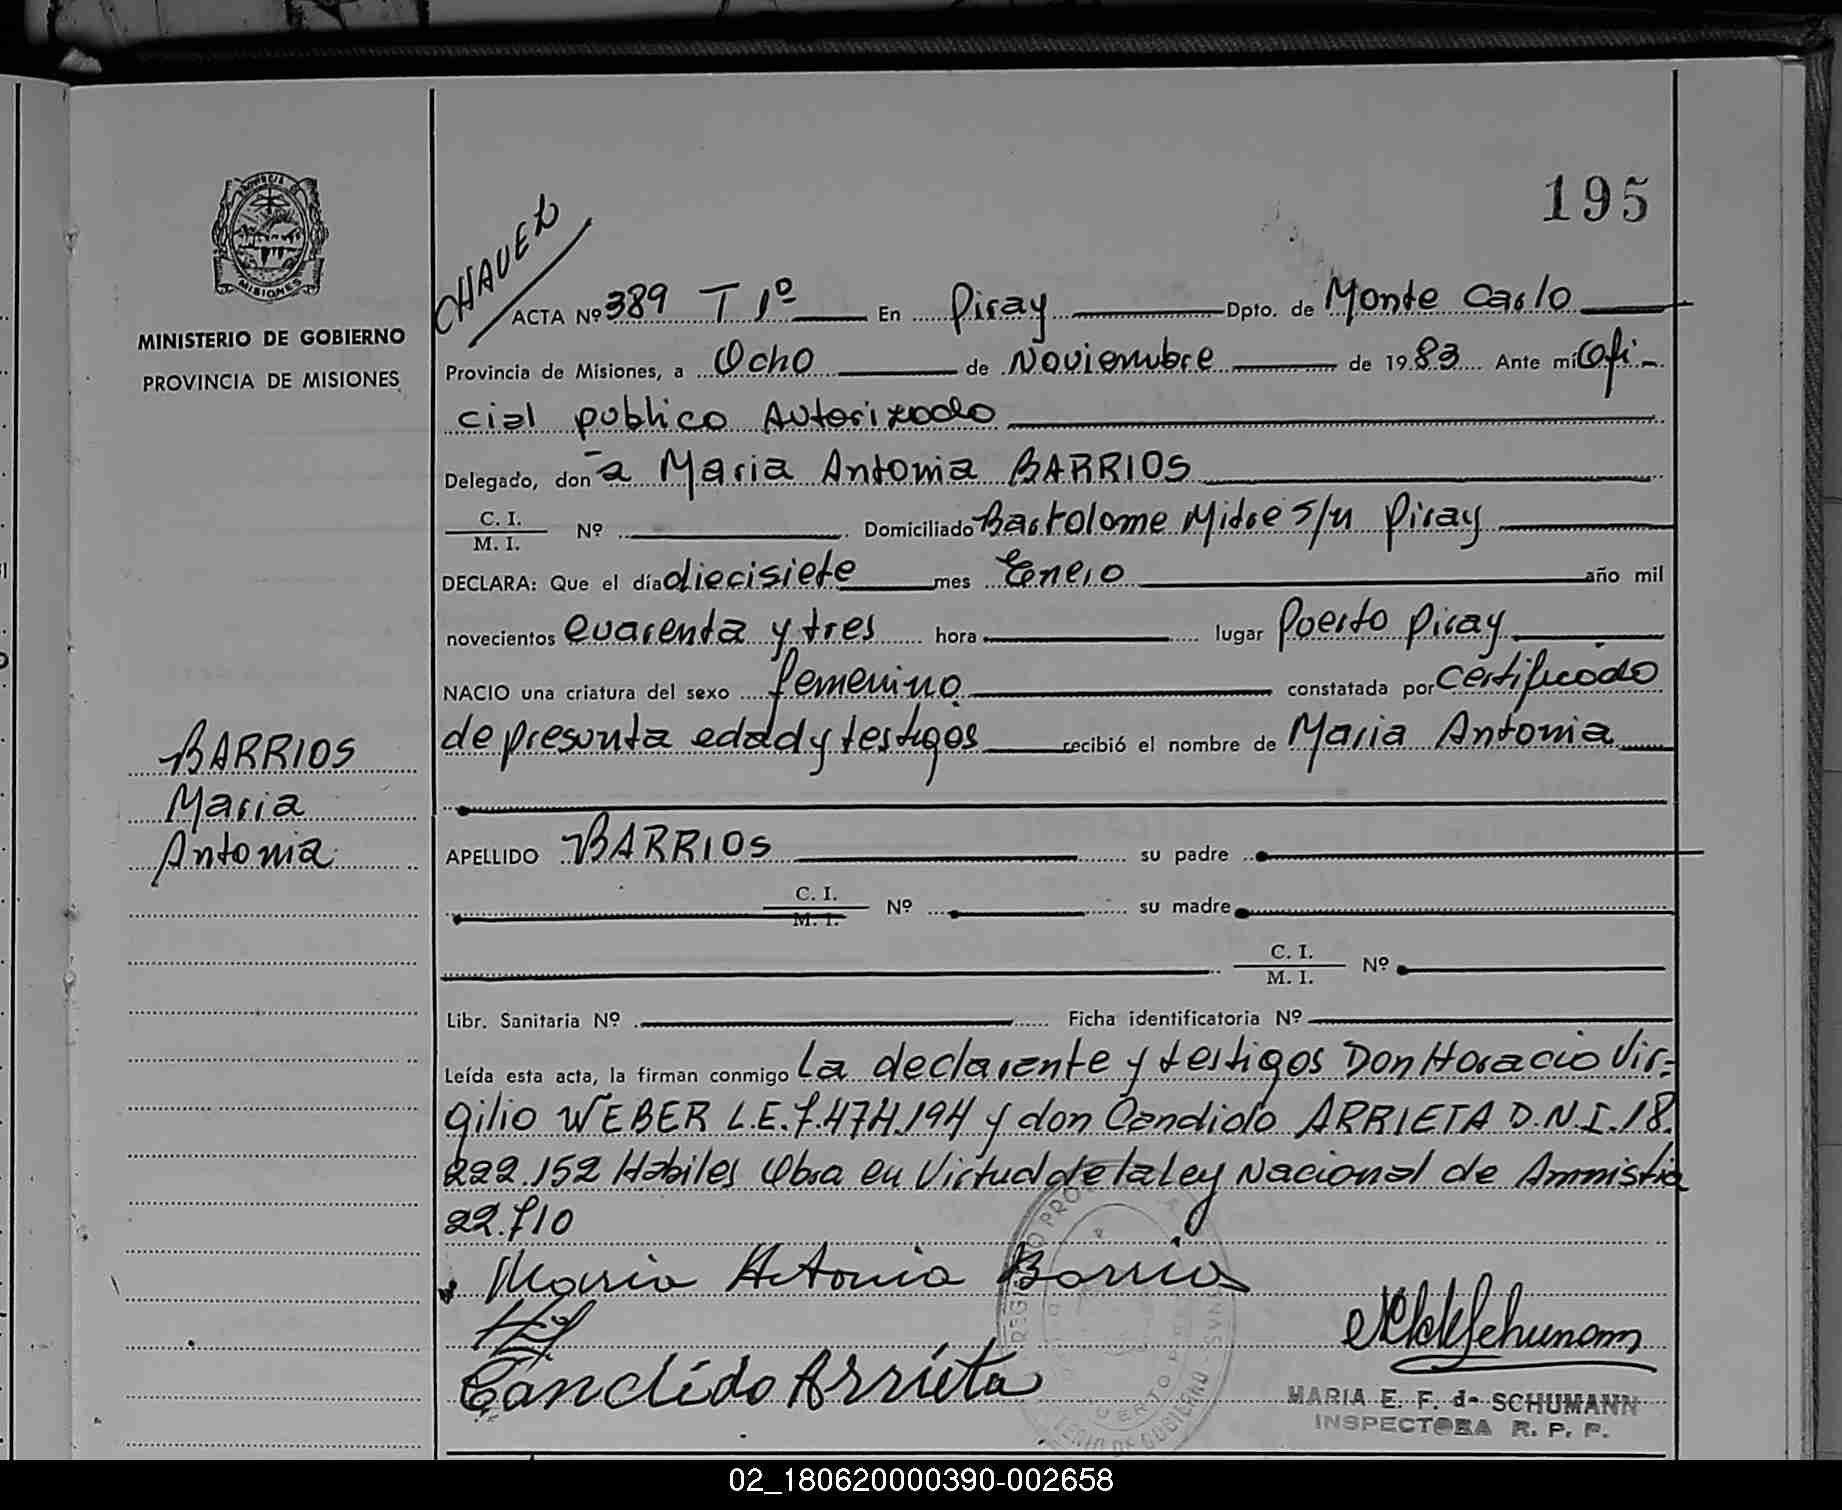 195
CHAVEZ
PROVINCIA DE
MISIONES
MINISTERIO DE GOBIERNO
PROVINCIA DE MISIONES
ACTA Nº 389 T 1º En Piray Dpto. de Monte Carlo
Provincia de Misiones, a Ocho de Noviembre de 1983 Ante mí Ofi-
cial publico Autorizado
Delegado, doña Maria Antonia BARRIOS
C. I.
M. I. Nº Domiciliado Bartolome Mitre s/n Piray
DECLARA: Que el día diecisiete mes Enero año mil
novecientos cuarenta y tres hora lugar Puerto Piray
NACIO una criatura del sexo femenino constatada por certificado
de presunta edad y testigos recibió el nombre de Maria Antonia
BARRIOS
Maria
Antonia
APELLIDO BARRIOS su padre
C. I.
M. I. Nº su madre
C. I.
M. I. Nº
Libr. Sanitaria Nº Ficha identificatoria Nº
Leída esta acta, la firman conmigo La declarante y testigos Don Horacio Vir-
gilio WEBER L.E.7.474.194 y don Candido ARRIETA D.N.I.18.
222.152 Habiles Obra en Virtud de la Ley Nacional de Amnistia
22.710
Maria Antonia Barrios
Candido Arrieta
MARIA E. F. de SCHUMANN
INSPECTORA R. P. P.
02_180620000390-002658